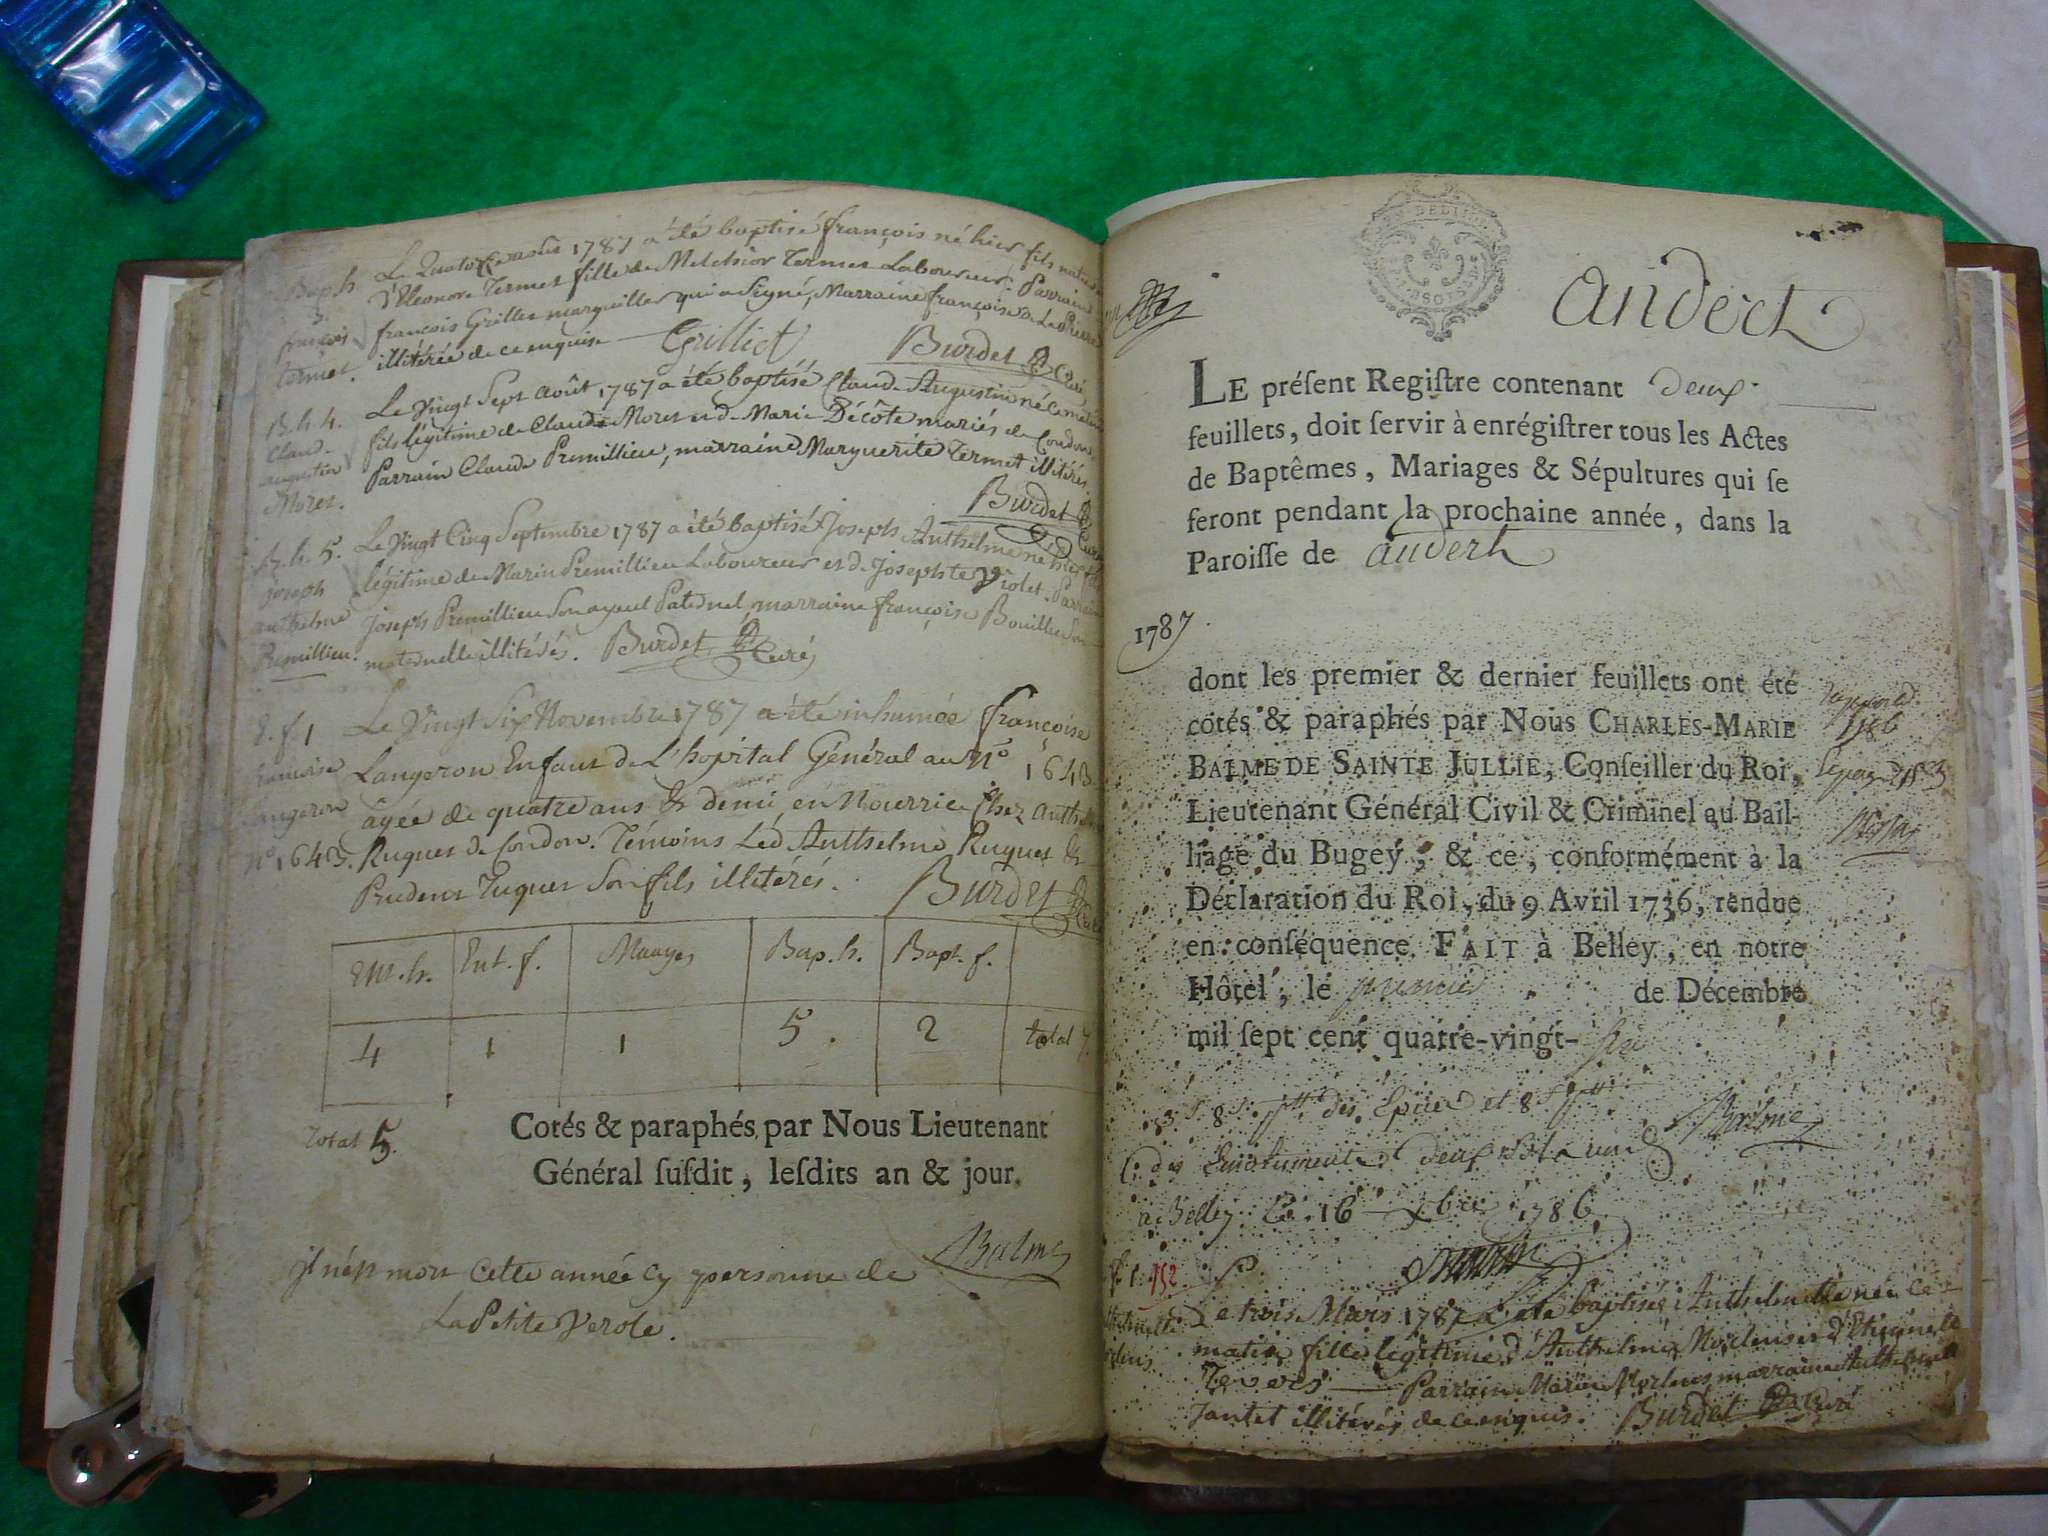 Bap. h. Le Quatorze août 1787 a été baptisé françois né hier fils naturel
3 d'Eleonore Termet fille de Melchior Termet Laboureur. Parrain
françois françois Grillet marguillier qui a signé, Marraine françoise De La Pierre
termet. illitérée de ce enquise Grilliet Burdet Curé
B. h. 4. Le Vingt Sept Août 1787 a été baptisé Claude Augustin né ce matin
Claud- fils légitime de Claude Moret et de Marie Décôte mariés de Condon,
augustin Parrain Claude Premillieu, marraine Marguerite Termet illitérés
Moret. Burdet Curé
B. h. 5. Le Vingt Cinq Septembre 1787 a été baptisé Joseph Anthelme né hier fils
joseph légitime de Marin Premillieu Laboureur et de Josephte Violet. Parrain
anthelme joseph Premillieu Son ayeul Paternel, marraine françoise Bouillier Son
Premillieu. maternelle illitérés. Burdet Curé
E. f. 1 Le Vingt Six Novembre 1787 a été inhumée françoise
francoise Langeron Enfant de L'hopital Général au N° 1643
Langeron âgée de quatre ans & demi en Nourrice Chez Anthelme
n° 1643. Ruquet de Condon. Témoins Led Anthelme Ruquet &
Prudent Ruquet Son fils illitérés. Burdet Curé
Ent. h. Ent. f. Mariages Bap. h. Bapt. f.
4 1 1 5. 2 total 7.
Total 5.
Cotés & paraphés par Nous Lieutenant
Général ſuſdit, leſdits an & jour.
Balme
jl n'est mort cette année cy personne de
La Petite Verole.
andert
LE préſent Regiſtre contenant deux
feuillets, doit ſervir à enrégiſtrer tous les Actes
de Baptêmes, Mariages & Sépultures qui ſe
feront pendant la prochaine année, dans la
Paroiſſe de andert
1787.
dont les premier & dernier feuillets ont été
cotés & paraphés par Nous CHARLES-MARIE
BALME DE SAINTE JULLIE, Conſeiller du Roi,
Lieutenant Général Civil & Criminel au Bail-
liage du Bugey, & ce, conformément à la
Déclaration du Roi, du 9 Avril 1736, rendue
en conſéquence. FAIT à Belley, en notre
Hôtel, le premier de Décembre
mil ſept cent quatre-vingt- six
1786
Balme
a Belley Le 16 xbre 1786
B. f. 1. 952
Le trois Mars 1787 a été baptisée Anthelmette née ce
matin fille légitime d'Anthelme Moclens et d'Etiennette
Parrain Marin Moclens marraine Anthelmette
Jantet illitérés de ce enquis. Burdet Curé